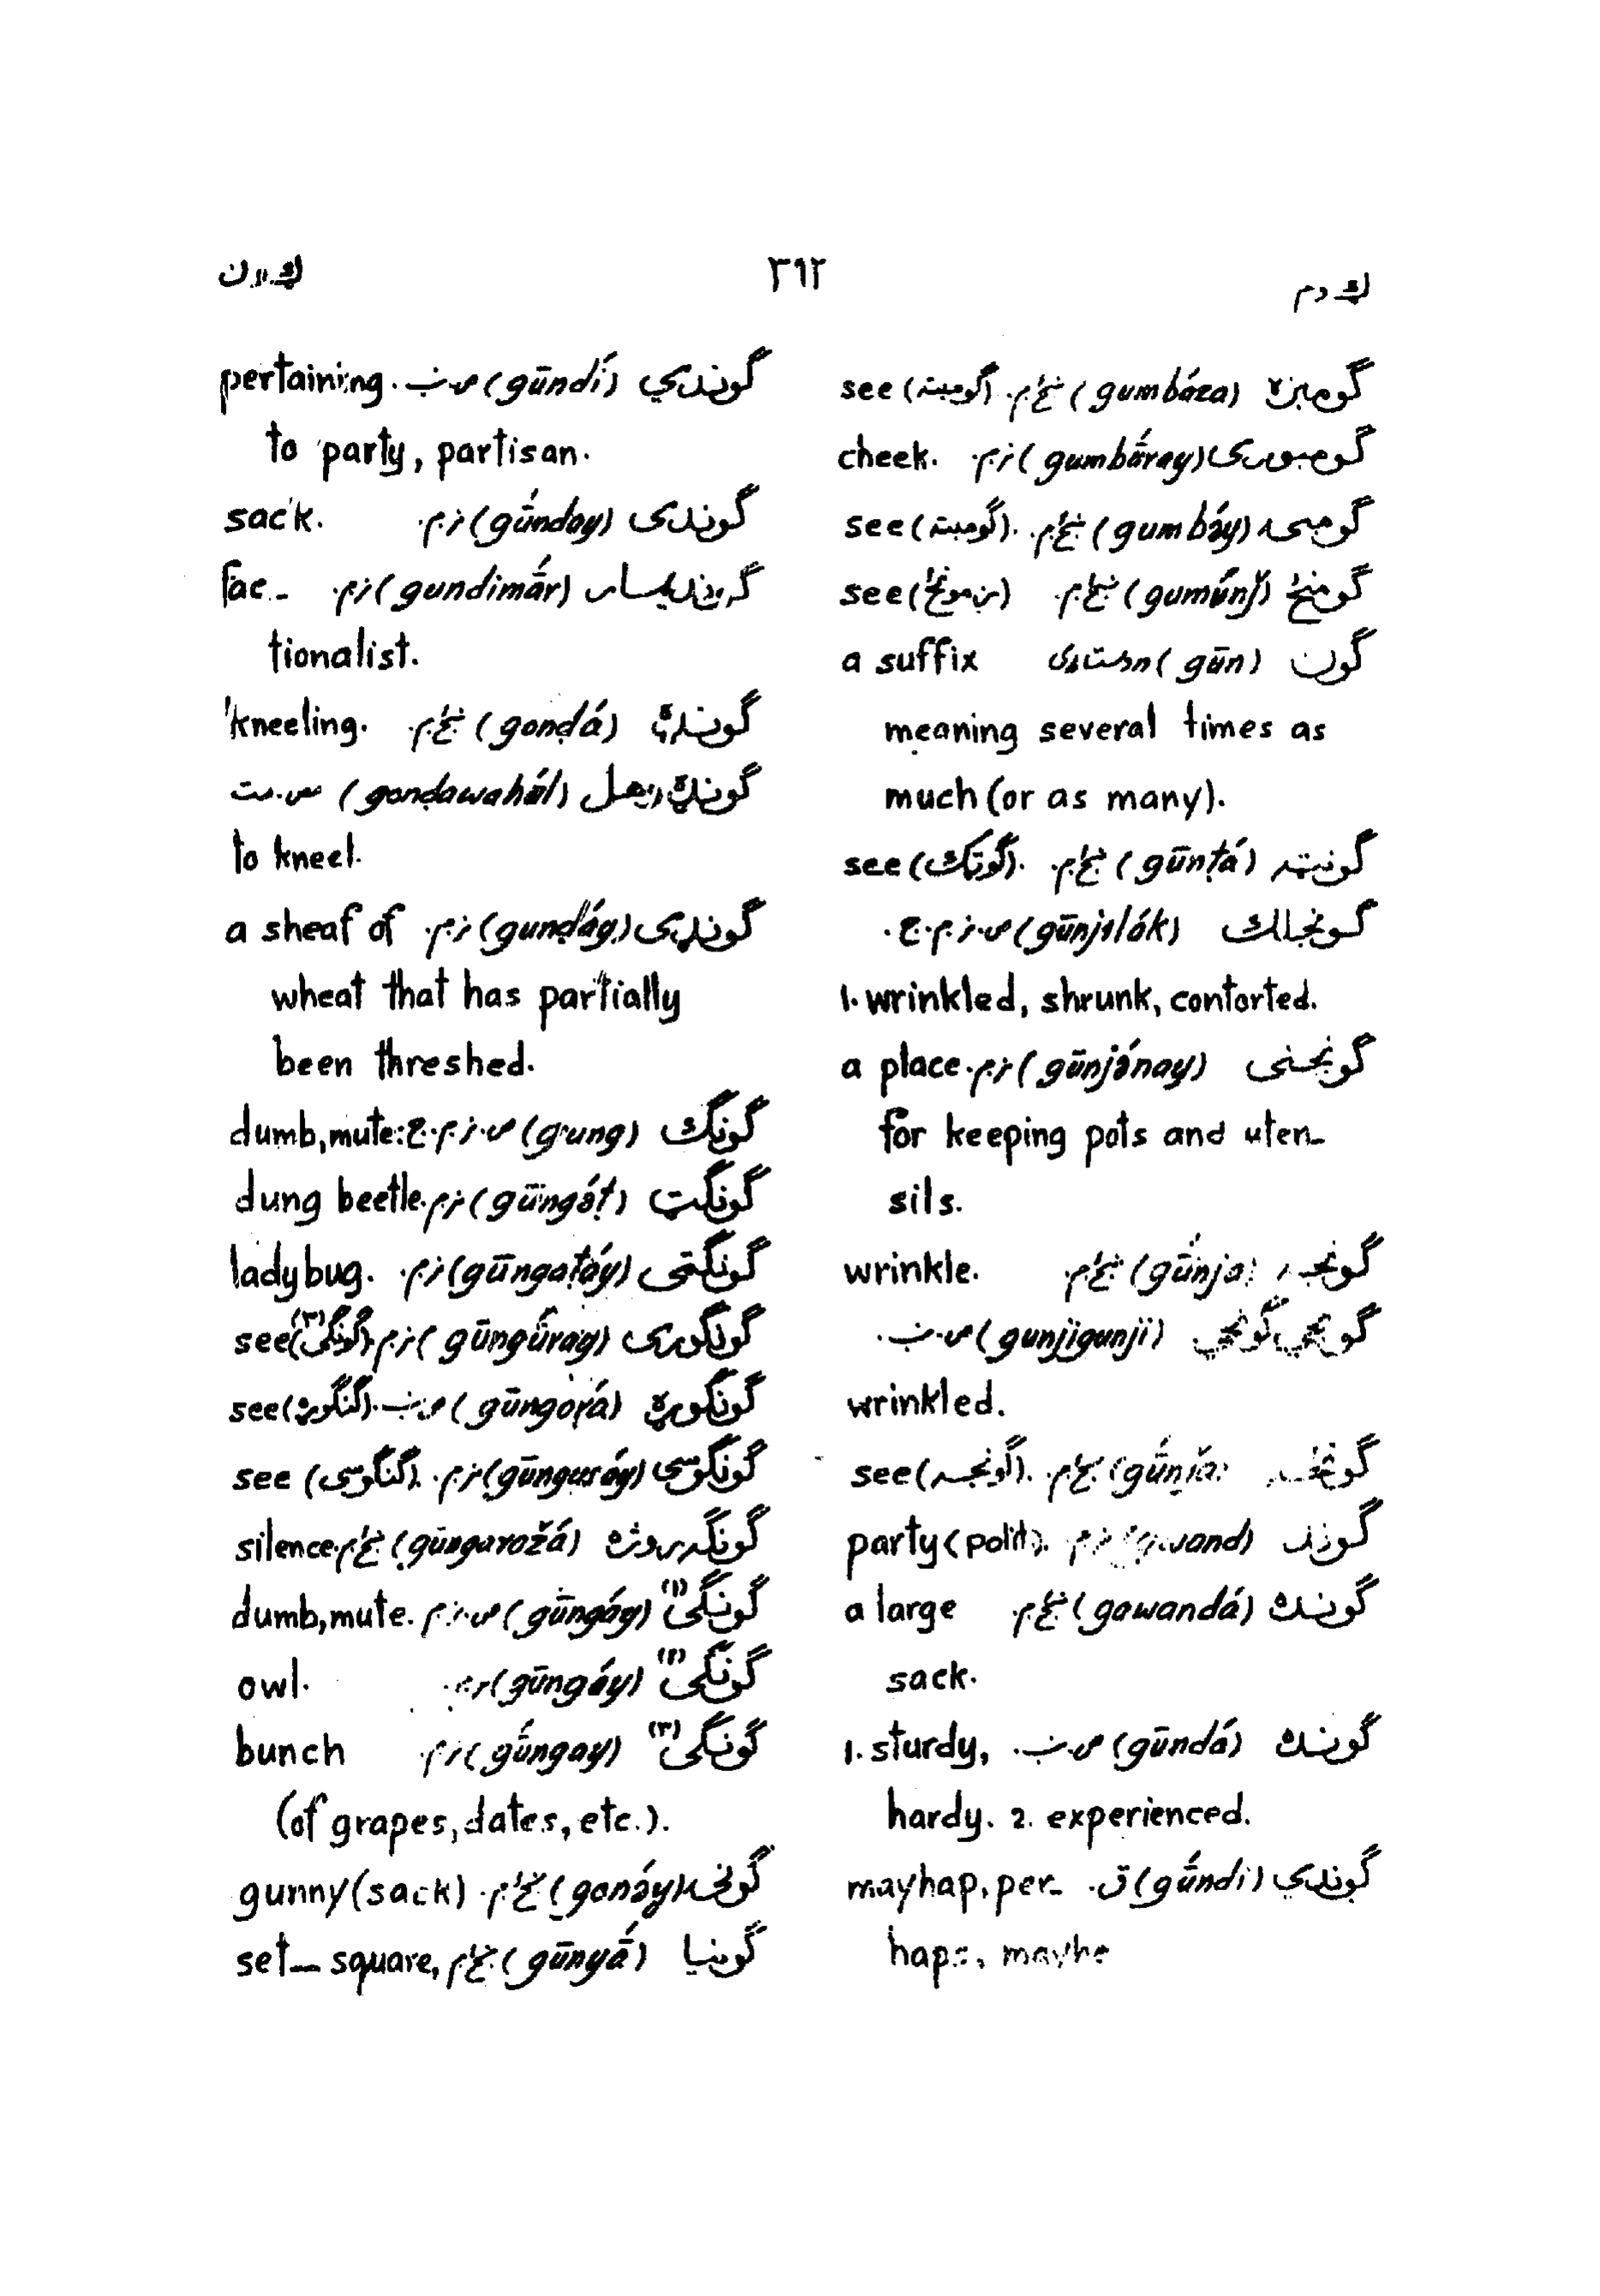 ٣٩٢
گومبزه (gumbáza) ښځ.م. see (گومبته)
گومبوری (gumbā́ray) نر.م. cheek.
گومبۍ (gumbə́y) ښځ.م. see (گومبته).
(gumúnj) ښځ.م. see
گون (gūn) a suffix
meaning several times as
much (or as many).
گونټه (gūnṭá) ښځ.م. see
گونجلک (gūnjəlák) ص.نر.م.ج.
1. wrinkled, shrunk, contorted.
گونجنی (gūnjə́nay) نر.م. a place
for keeping pots and uten-
sils.
گونجه (gū́nja) ښځ.م. wrinkle.
گونجي گونجي (gunjigunji) ص.ب.
wrinkled.
see (گونجه).
گوند (gwand) نر.م. party (polit).
گونده (gawandá) ښځ.م. a large
sack.
گونده (gūndá) ص.ب. 1. sturdy,
hardy. 2. experienced.
گوندي (gū́ndi) ق. mayhap, per-
haps, maybe
گوندي (gūndí) ص.ب. pertaining
to party, partisan.
گوندی (gū́nday) نر.م. sack.
گوندیمار (gundimā́r) نر.م. fac-
tionalist.
گونډه (gonḍá) ښځ.م. kneeling.
گونډه وهل (gonḍawahə́l)
to kneel.
گونډی (gunḍáy) نر.م. a sheaf of
wheat that has partially
been threshed.
گونګ (gung) ص.نر.م.ج. dumb, mute:
گونګټ (gūngə́ṭ) نر.م. dung beetle.
گونګټی (gūngaṭáy) نر.م. ladybug.
گونګوری (gūngū́ray) نر.م. see (گونګی (٣)).
گونګوړه (gūngoṛá) ص.ب. see (ګنګوړه).
گونګوسی (gūngusáy) نر.م. see (ګنګوسی).
گونګه روژه (gūngaroẑá) ښځ.م. silence
گونګی (١) (gūngáy) ص.نر.م. dumb, mute.
گونګی (٢) (gūngáy) نر.م. owl.
گونګی (٣) (gū́ngay) نر.م. bunch
(of grapes, dates, etc.).
گونۍ (gonə́y) ښځ.م. gunny (sack)
گونیا (gūnyā́) ښځ.م. set-square,